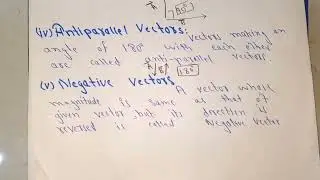 (iv) Antiparallel Vectors: Vectors making an
angle of 180° with each other
are called anti-parallel vectors.
180°
(v) Negative Vectors
A vector whose
magnitude is same as that of
given vector but its direction is
reversed is called Negative vector